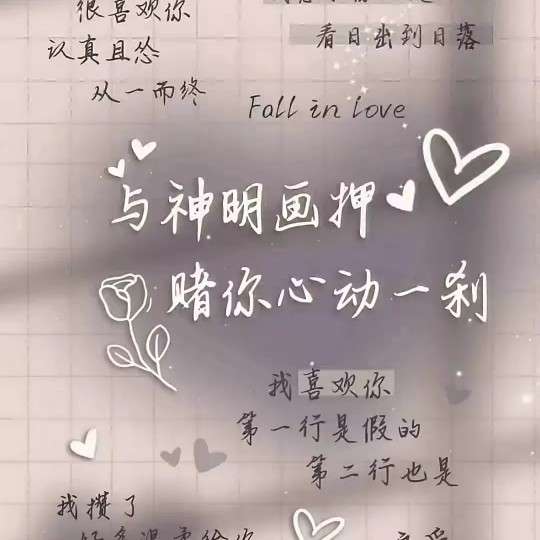 很喜欢你
认真且怂
从一而终
看日出到日落
Fall in love
与神明画押
赌你心动一刹
我喜欢你
第一行是假的
第二行也是
我攒了